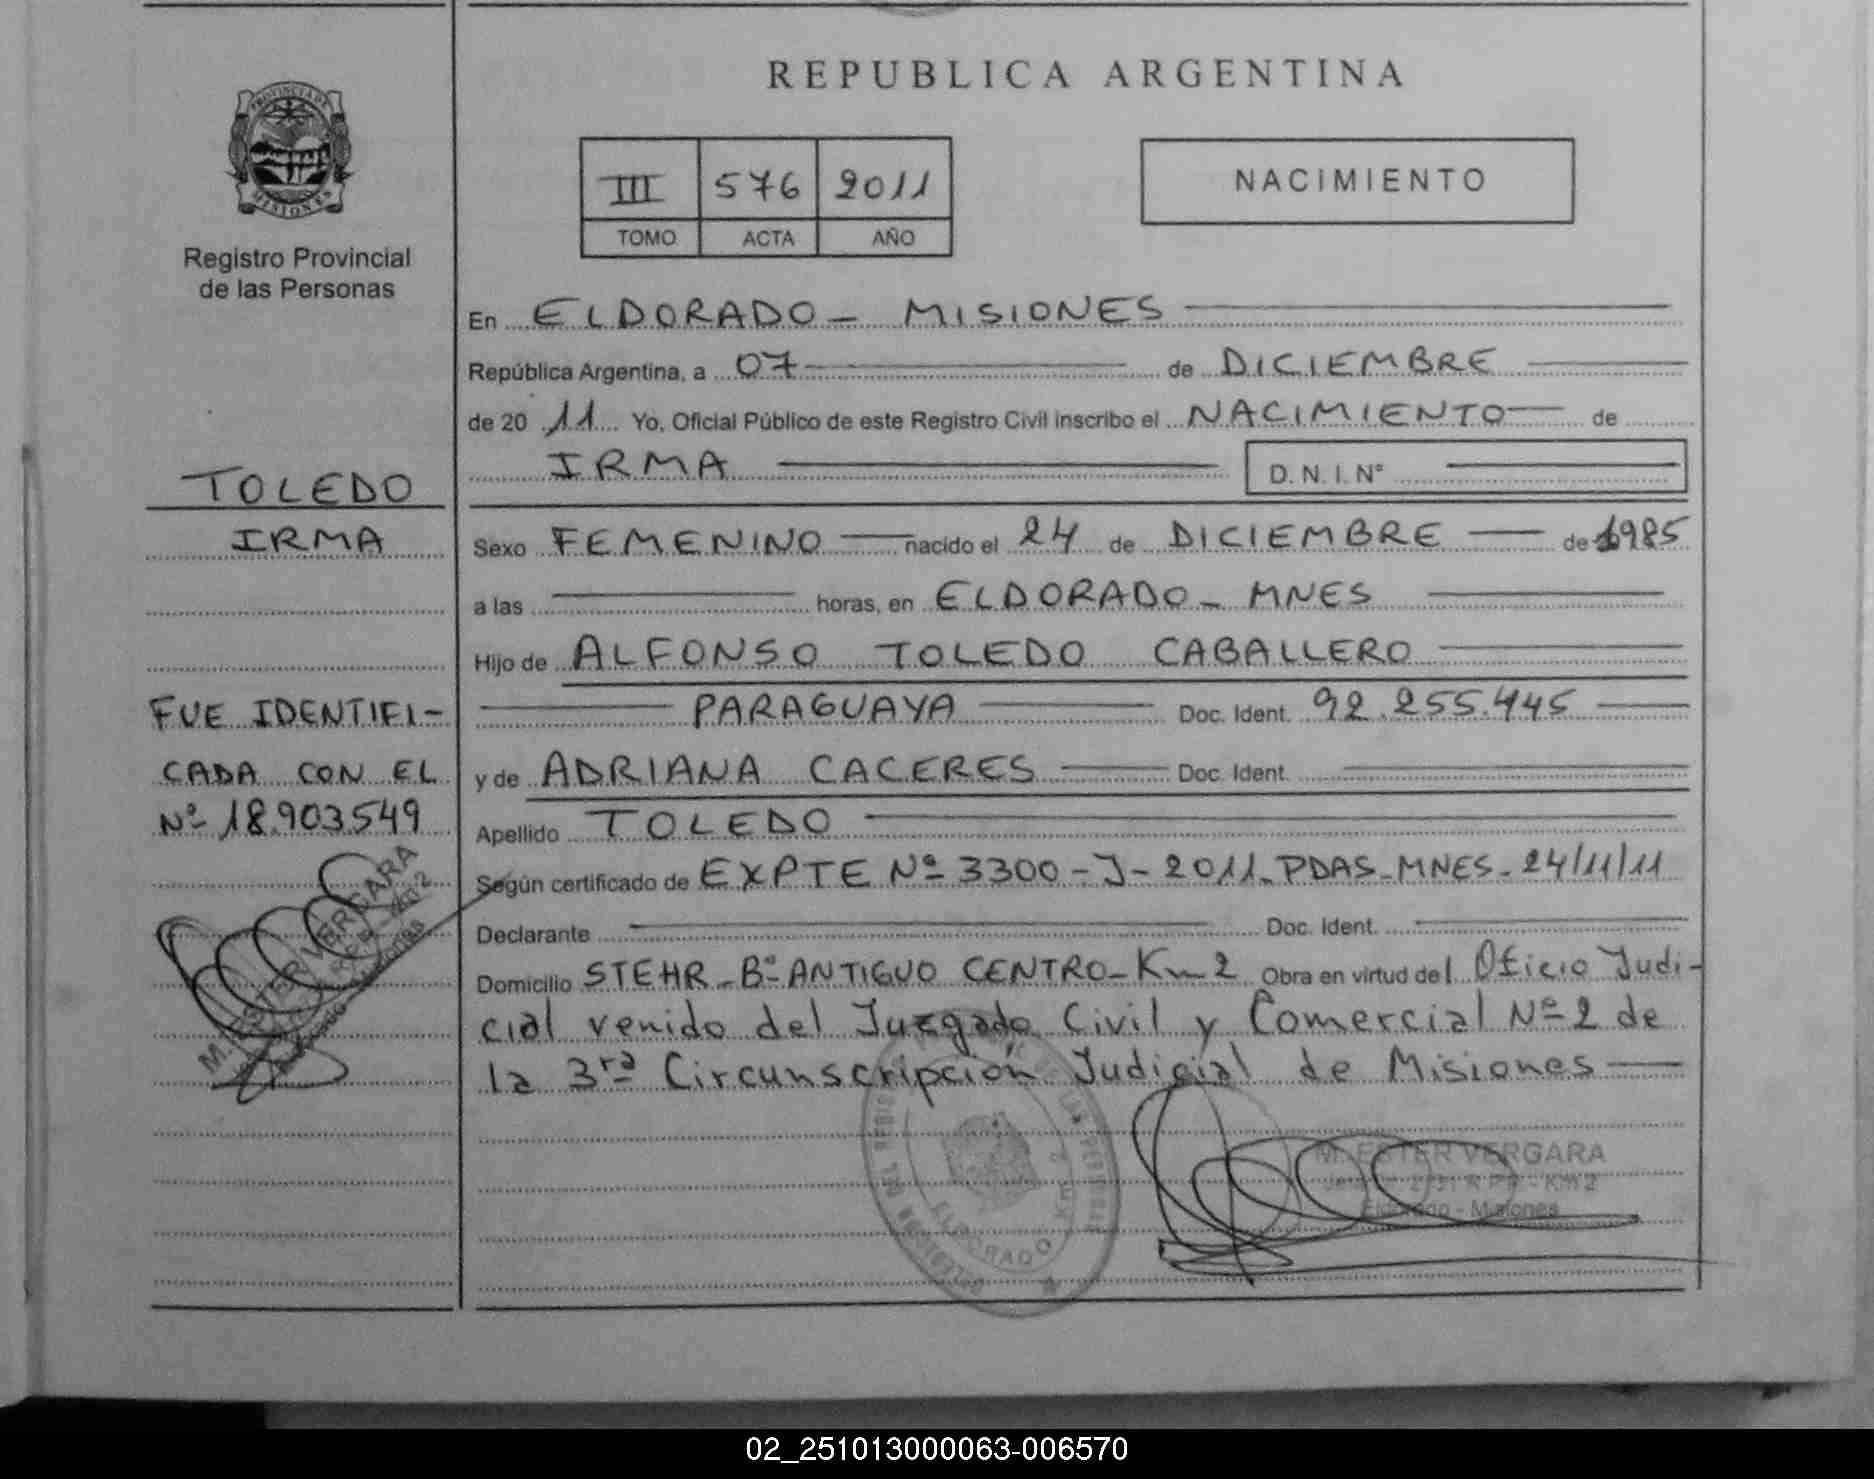 REPUBLICA ARGENTINA
PROVINCIA DE
MISIONES
Registro Provincial
de las Personas
III 576 2011
TOMO ACTA AÑO
NACIMIENTO
En ELDORADO - MISIONES
República Argentina, a 07 de DICIEMBRE
de 20 11 Yo, Oficial Público de este Registro Civil inscribo el NACIMIENTO de
IRMA D. N. I. Nº
Sexo FEMENINO nacido el 24 de DICIEMBRE de 1985
a las horas, en ELDORADO - MNES
Hijo de ALFONSO TOLEDO CABALLERO
PARAGUAYA Doc. Ident. 92.255.445
y de ADRIANA CACERES Doc. Ident.
Apellido TOLEDO
Según certificado de EXPTE Nº 3300-J-2011-PDAS-MNES-24/11/11
Declarante Doc. Ident.
Domicilio STEHR-Bº ANTIGUO CENTRO-Km 2 Obra en virtud del Oficio Judi-
cial venido del Juzgado Civil y Comercial Nº 2 de
la 3ra Circunscripción Judicial de Misiones
TOLEDO
IRMA
FUE IDENTIFI-
CADA CON EL
Nº 18.903549
M. ESTER VERGARA
M. ESTER VERGARA
Km 2
Eldorado - Misiones
ELDORADO Km 2
02_251013000063-006570